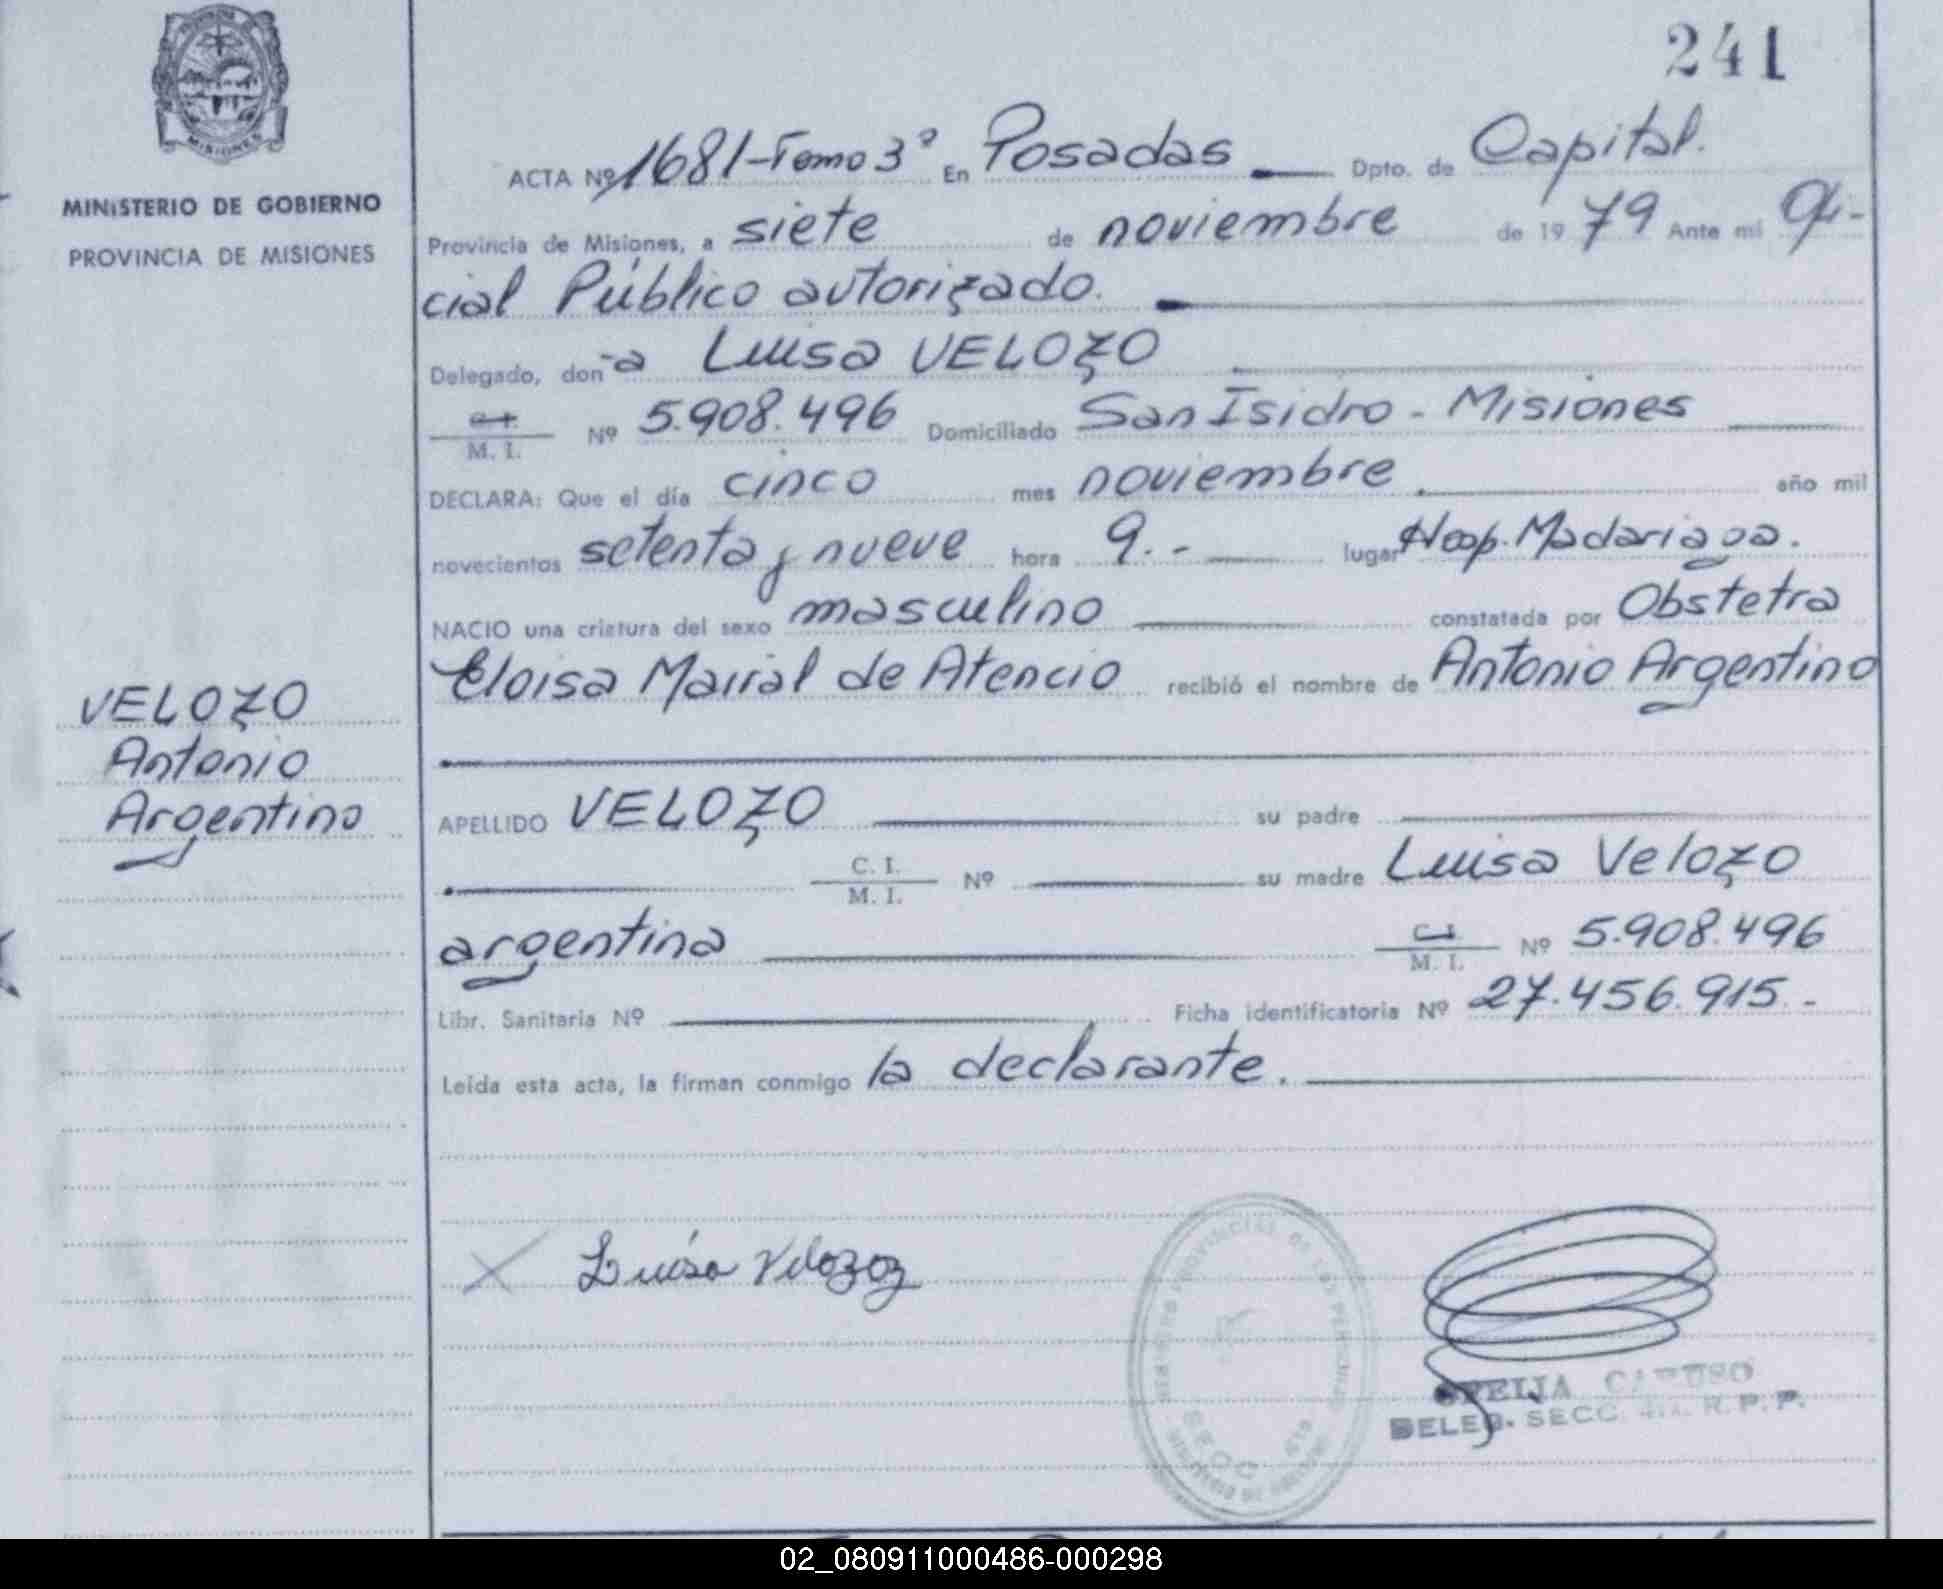 241
MISIONES
MINISTERIO DE GOBIERNO
PROVINCIA DE MISIONES
ACTA Nº 1681-Tomo 3º En Posadas Dpto. de Capital.
Provincia de Misiones, a siete de noviembre de 1979 Ante mi Ofi-
cial Público autorizado.
Delegado, don-a Luisa VELOZO
C. I.
M. I. Nº 5.908.496 Domiciliado San Isidro - Misiones
DECLARA: Que el día cinco mes noviembre año mil
novecientos setenta y nueve hora 9.- lugar Hosp. Madariaga.
NACIO una criatura del sexo masculino constatada por Obstetra
Eloisa de Atencio recibió el nombre de Antonio Argentino
VELOZO
Antonio
Argentino
APELLIDO VELOZO su padre
C. I.
M. I. Nº su madre Luisa Velozo
argentina C. I.
M. I. Nº 5.908.496
Libr. Sanitaria Nº Ficha identificatoria Nº 27.456.915.-
Leída esta acta, la firman conmigo la declarante.
X Luisa Velozoz
OFELIA CARUSO
DELEG. SECC. R. P. P.
02_080911000486-000298